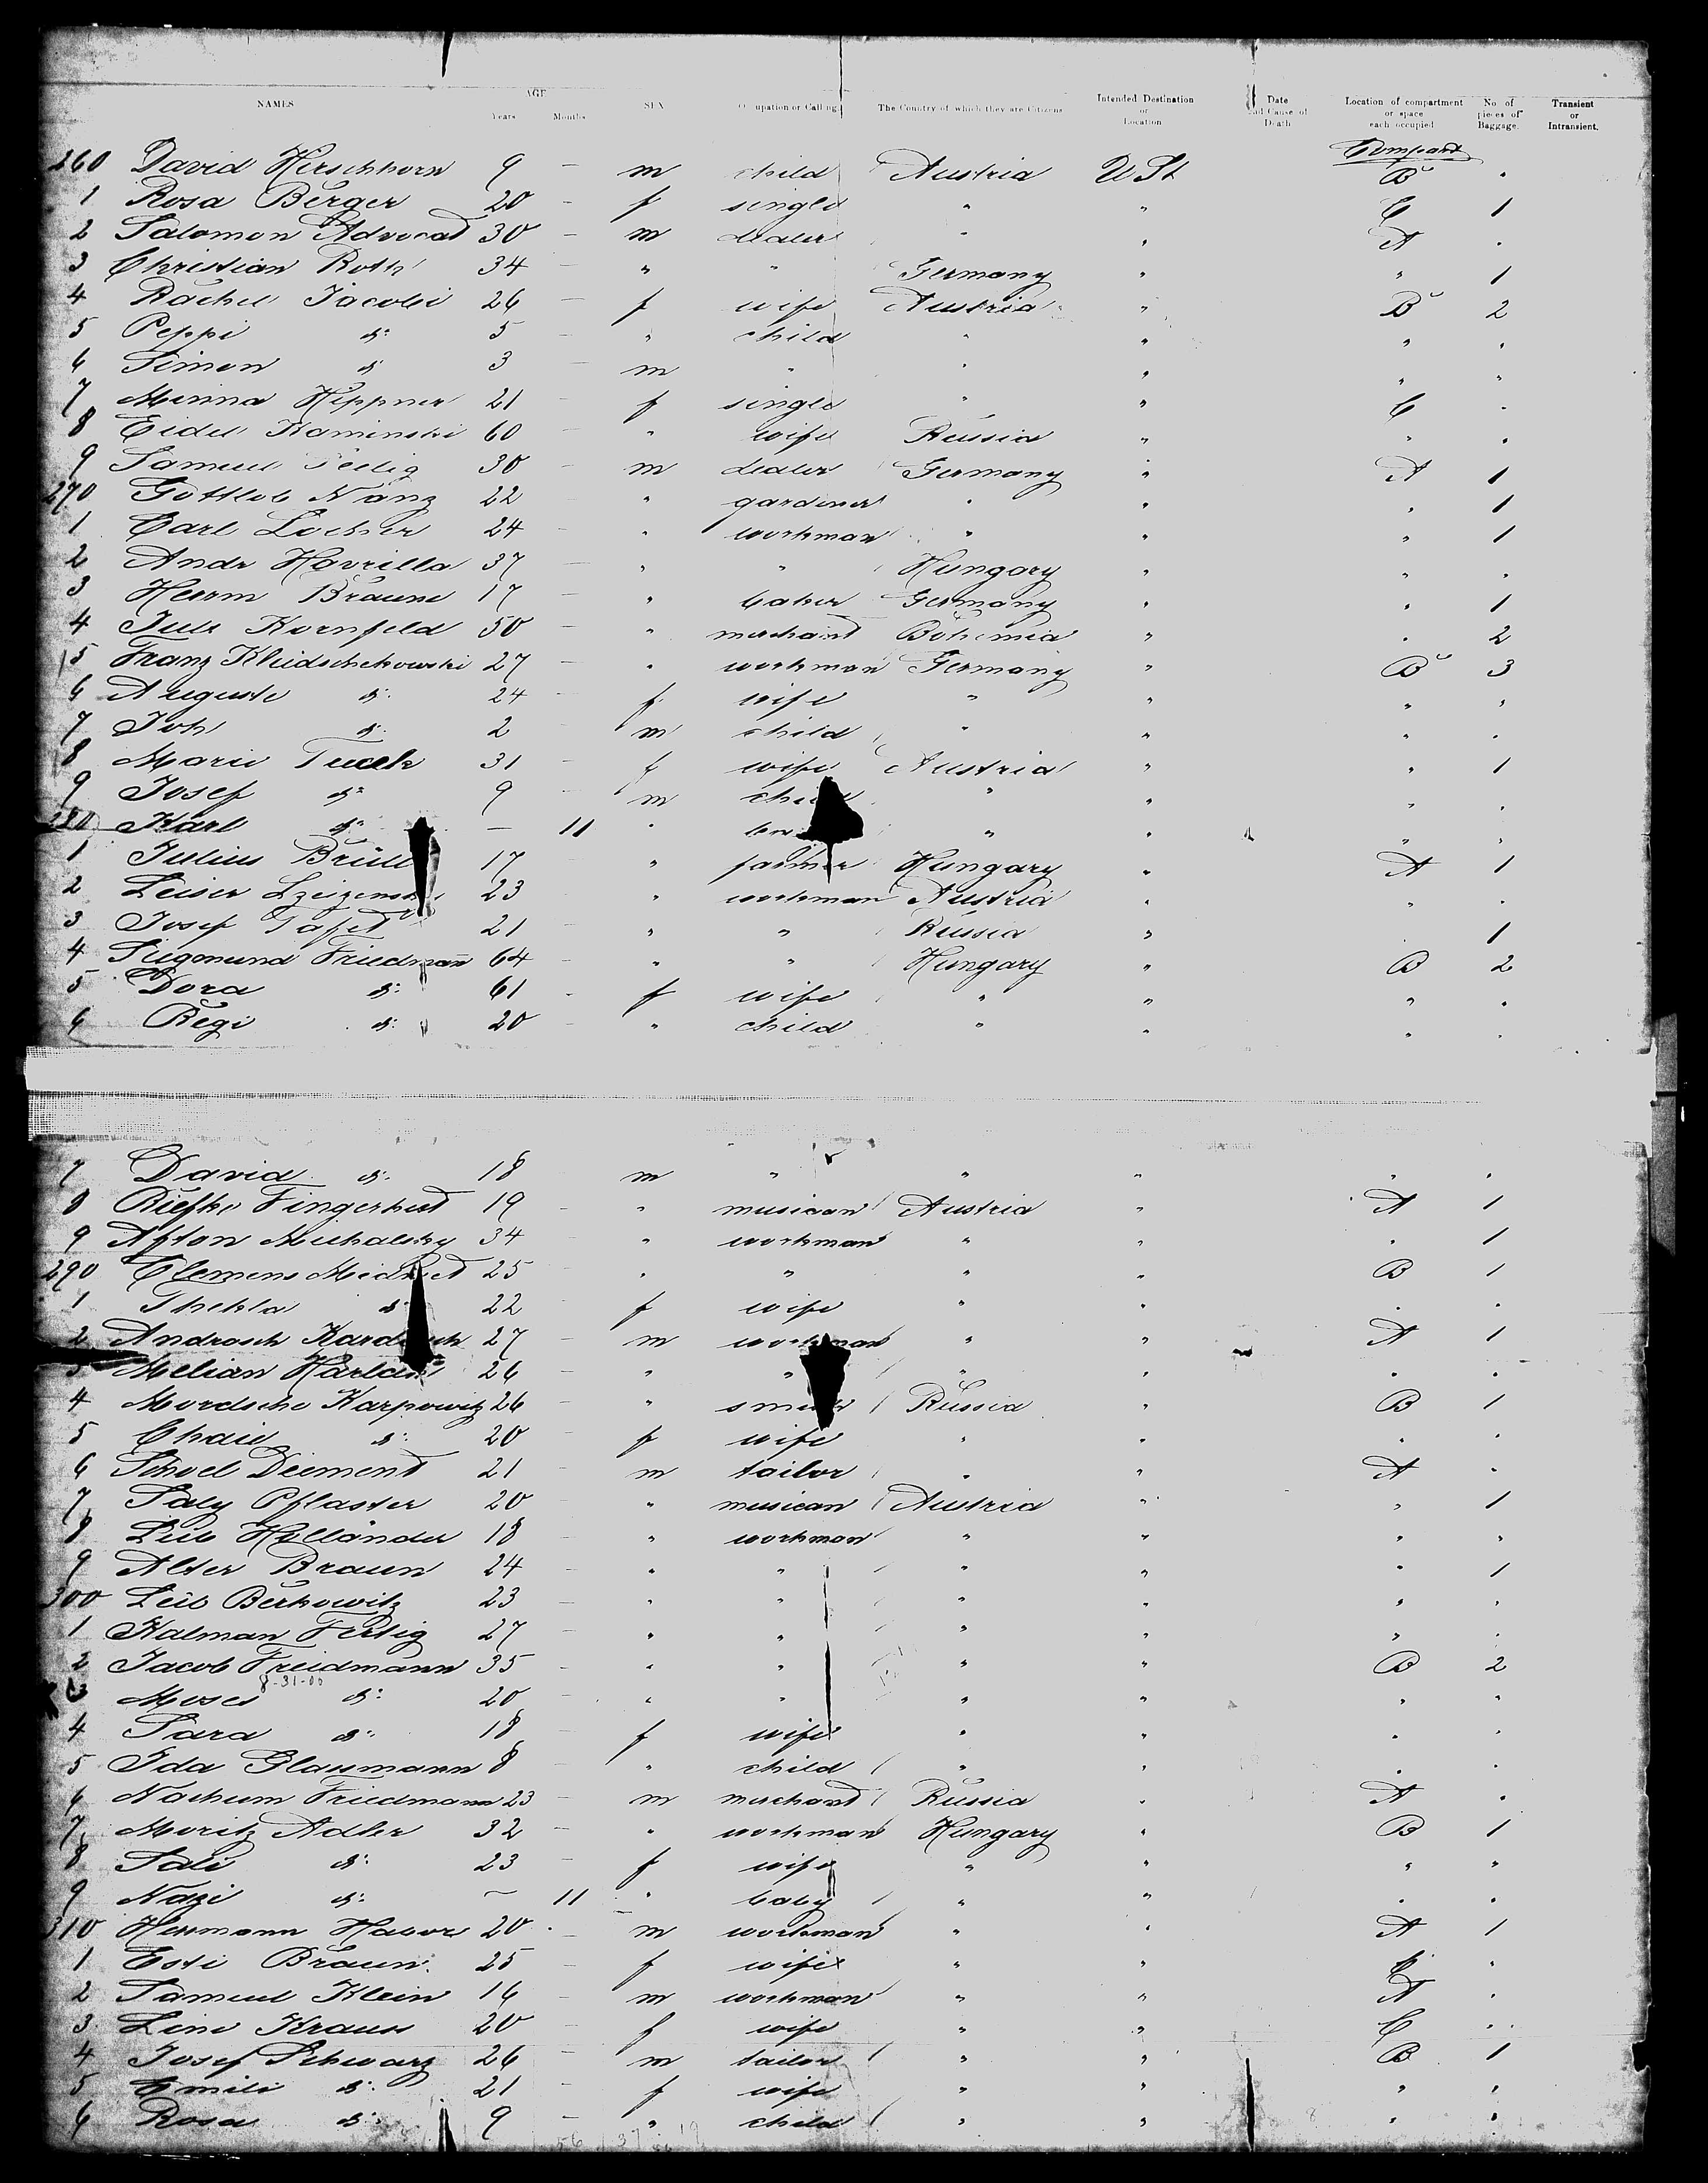 NAMES AGE Years Months SEX Occupation or Calling The Country of which they are Citizens Intended Destination or Location Date and Cause of Death Location of compartment or space each occupied No. of pieces of Baggage. Transient or Intransient.
Compart
260 David Hirschhorn 9 — m child Austria USt B "
1 Rosa Berger 20 — f single " " C 1
2 Salomon Advocat 30 — m dealer " " A "
3 Christian Roth 34 — " " Germany " " 1
4 Rachel Jacobi 26 — f wife Austria " B 2
5 Peppi do 5 — " child " " " "
6 Simon do 3 — m " " " " "
7 Minna Heppner 21 — f single " " C "
8 Eidel Kaminski 60 — " wife Russia " " "
9 Samuel 30 — m dealer Germany " A 1
270 Gottlob Nanz 22 — " gardener " " " 1
1 Carl Locher 24 — " workman " " " 1
2 Andr Havrilla 37 — " " Hungary " " "
3 Herm Braune 17 — " baker Germany " " 1
4 Jul Kornfeld 50 — " merchant Bohemia " " 2
5 Franz 27 — " workman Germany " B 3
6 Auguste do 24 — f wife " " " "
7 Joh do 2 m child " " " "
8 Marie Tucek 31 — f wife Austria " " 1
9 Josef do 9 m child " " " "
280 Karl do — 11 " " " " "
1 Julius Brüll 17 " farmer Hungary " A 1
2 Leiser 23 " workman Austria " " "
3 Josef Tafet 21 — " " Russia " " 1
4 Siegmund Friedmann 64 — " " Hungary " B 2
5 Dora do 61 — f wife " " " "
6 Regi do 20 — " child " " " "
7 David do 18 m " " " " "
8 Riefke Fingerhut 19 — " musican Austria " A 1
9 Anton Michalsky 34 — " workman " " " 1
290 Clemens 25 " " " " B 1
1 Thekla do 22 f wife " " " "
2 Andrasch 27 — m workman " " A 1
3 Melian 26 — " " " " " "
4 Mordsche Karpowitz 26 — " smith Russia " B 1
5 do 20 — f wife " " " "
6 Schoel Diement 21 — m tailor " " A "
7 Saly Pflaster 20 — " musican Austria " " 1
8 Leib Holländer 18 — " workman " " " "
9 Alter Braun 24 — " " " " " 1
300 Leib Berkowitz 23 — " " " " " "
1 Kalman Fertig 27 — " " " " " "
2 Jacob Freidmann 35 — " " " " B 2
8-31-00
3 Moses do 20 — " " " " " "
4 Sara do 18 — f wife " " " "
5 Ida Glassmann 8 — " child " " " "
6 Nachum Friedmann 23 — m merchant Russia " A "
7 Moritz Adler 32 — " workman Hungary " B 1
8 Sali do 23 — f wife " " " "
9 Nazi do — 11 " baby " " " "
310 Hermann 20 — m workman " " A 1
1 Esti Braun 25 — f wife " " C "
2 Samuel Klein 16 — m workman " " A "
3 Line Krauss 20 — f wife " " C "
4 Josef Schwarz 26 — m tailor " " B 1
5 Emili do 21 — f wife " " " "
6 Rosa do 9 — " child " " " "